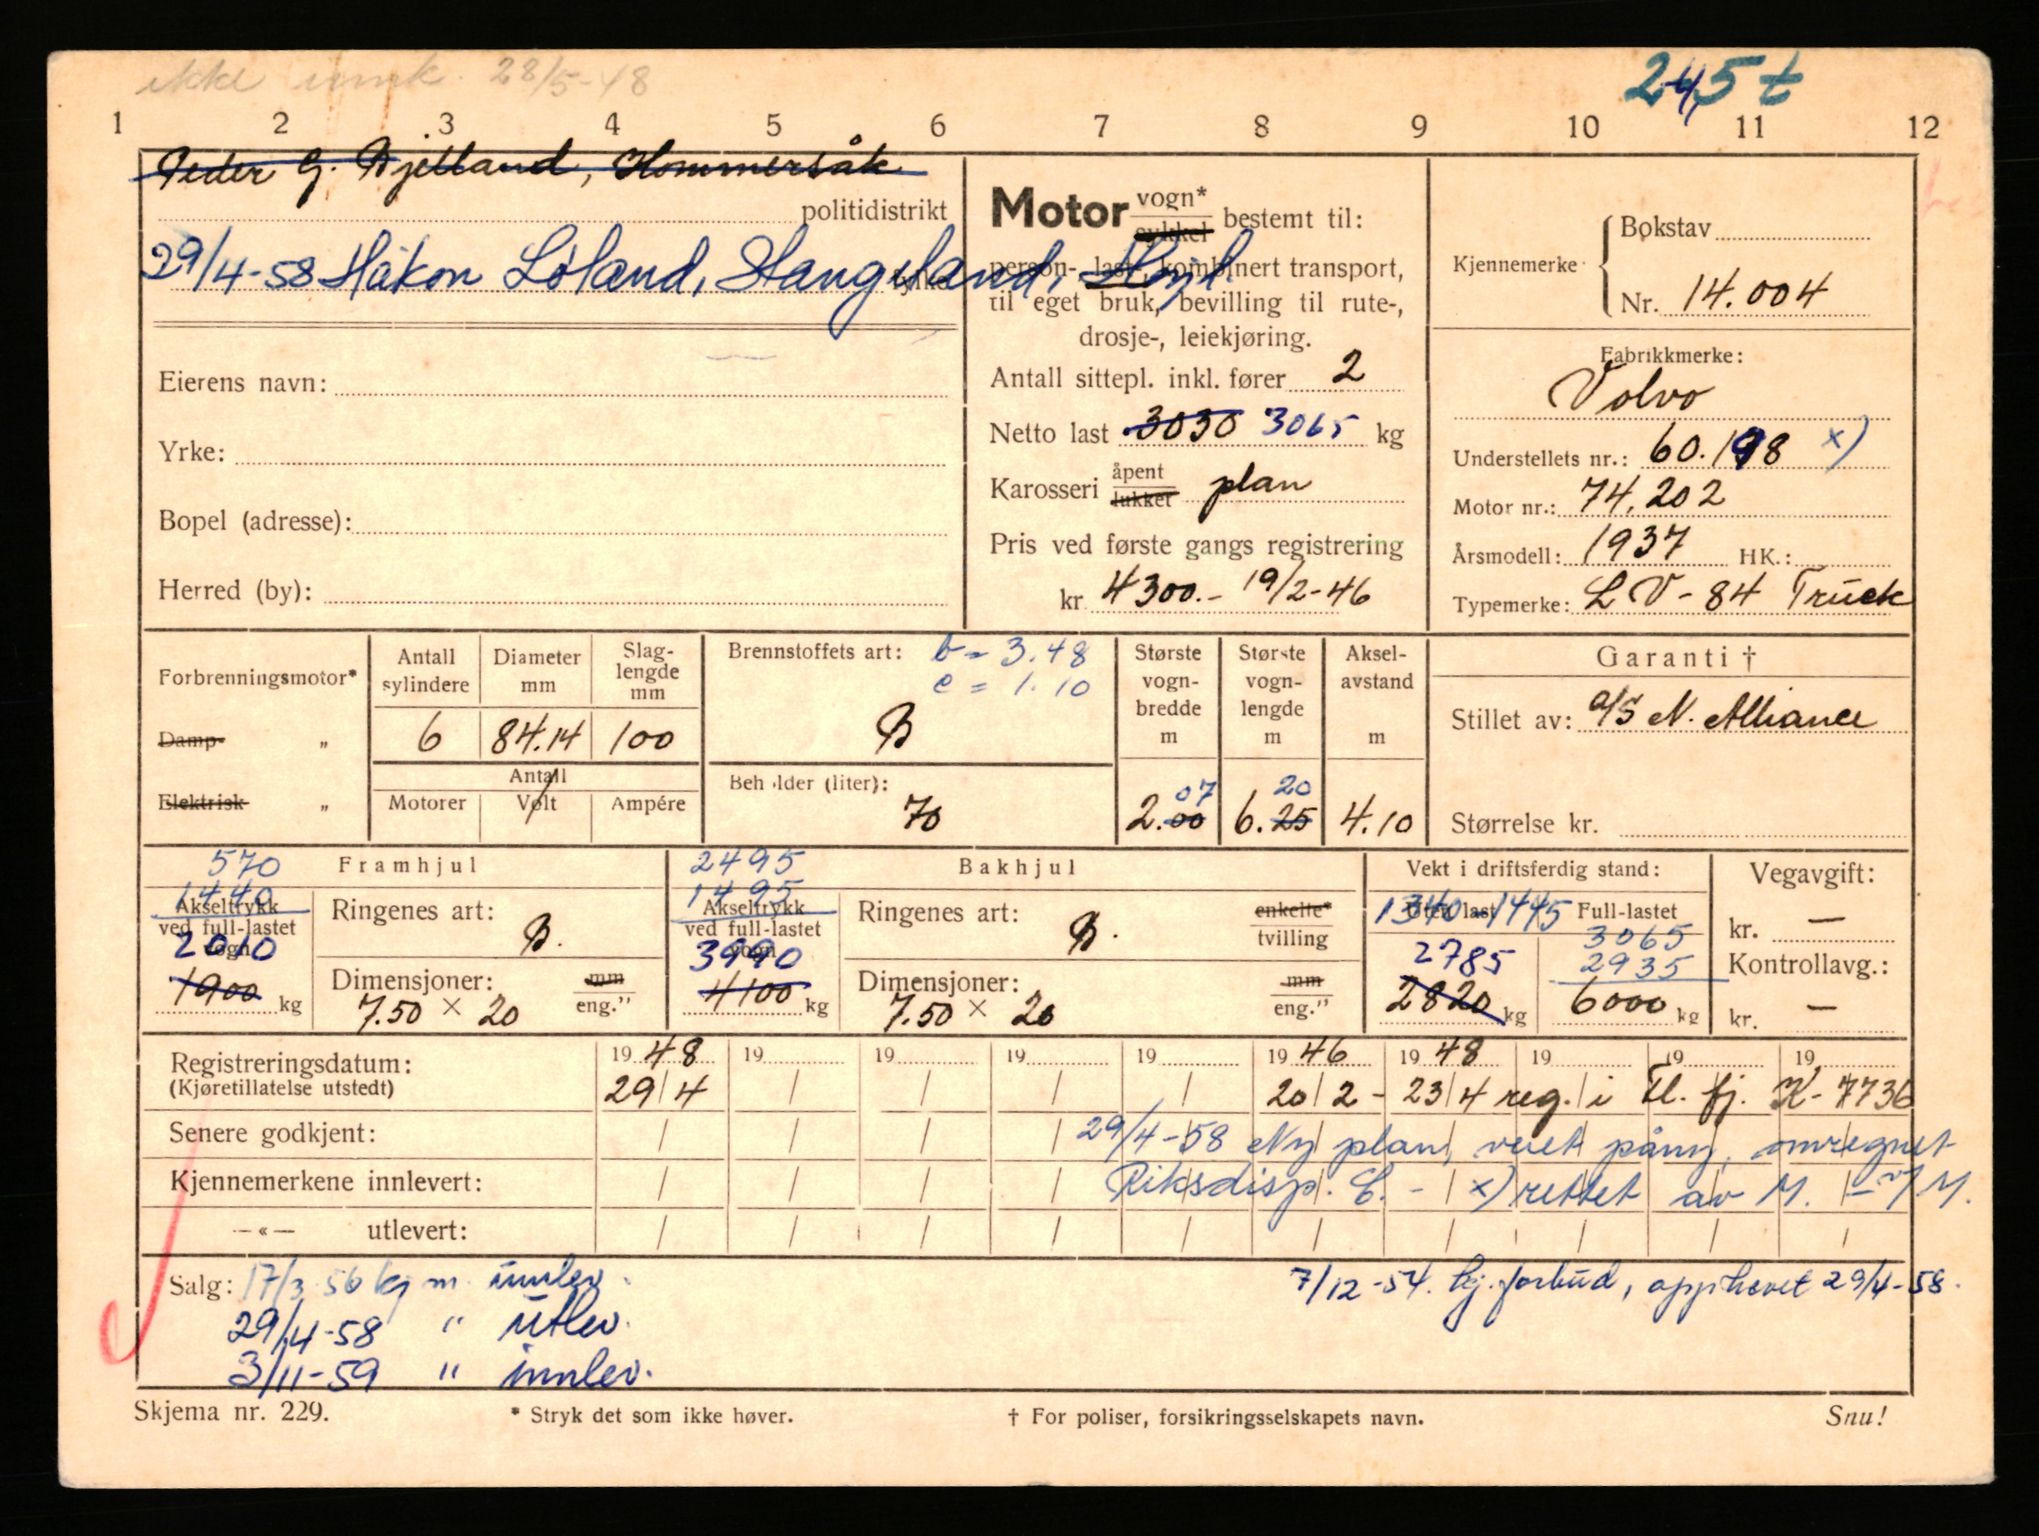 ikke innk. 28/5-48
245 t
1 2 3 4 5 6 7 8 9 10 11 12
Peder G. Bjelland, Hommersåk
politidistrikt
29/4-58 Håkon Löland, Stangeland, Höyl.
fylke
Eierens navn:
Yrke:
Bopel (adresse):
Herred (by):
Motor vogn* sykkel bestemt til:
person-, last-, kombinert transport,
til eget bruk, bevilling til rute-,
drosje-, leiekjøring.
Antall sittepl. inkl. fører 2
Netto last 3030 3065 kg
Karosseri åpent lukket plan
Pris ved første gangs registrering
kr 4300.- 19/2-46
Kjennemerke
Bokstav
Nr. 14.004
Fabrikkmerke:
Volvo
Understellets nr.: 60.198 x)
Motor nr.: 74.202
Årsmodell: 1937 HK.:
Typemerke: LV-84 Truck
Forbrenningsmotor*
Damp- "
Elektrisk "
Antall sylindere
6
Diameter mm
84.14
Slaglengde mm
100
Antall
Motorer Volt Ampére
Brennstoffets art: b = 3.48
e = 1.10
B
Beholder (liter):
70
Største vognbredde m
2.00 07
Største vognlengde m
6.25 20
Akselavstand m
4.10
Garanti †
Stillet av: a/s N. Alliance
Størrelse kr.
Framhjul
570
1440
Akseltrykk
ved full-lastet
vogn
2010
1900 kg
Ringenes art: B.
Dimensjoner: mm
7.50 × 20 eng."
Bakhjul
2495
1495
Akseltrykk
ved full-lastet
vogn
3990
4100 kg
Ringenes art: B. enkelte* tvilling
Dimensjoner: mm
7.50 × 20 eng."
Vekt i driftsferdig stand:
Uten last Full-lastet
1340 - 1445
3065
2935
2785
2820 kg 6000 kg
Vegavgift:
kr. —
Kontrollavg.:
kr. —
Registreringsdatum: 19 48 19 19 19 19 19 46 19 48 19 19 19
(Kjøretillatelse utstedt) 29/4 / / / / 20/2 - 23/4 reg. i Tl. fj. K-7736
Senere godkjent: 29/4-58 Ny plan, veiet påny, omregnet
Kjennemerkene innlevert: Riksdisp. C. - x) rettet av M. - M.
—«— utlevert:
Salg: 17/3 56 kj m. innlev.
29/4-58 " utlev.
3/11-59 " innlev.
7/12-54. kj. forbud, opphevet 29/4-58.
Skjema nr. 229.
* Stryk det som ikke høver.
† For poliser, forsikringsselskapets navn.
Snu!